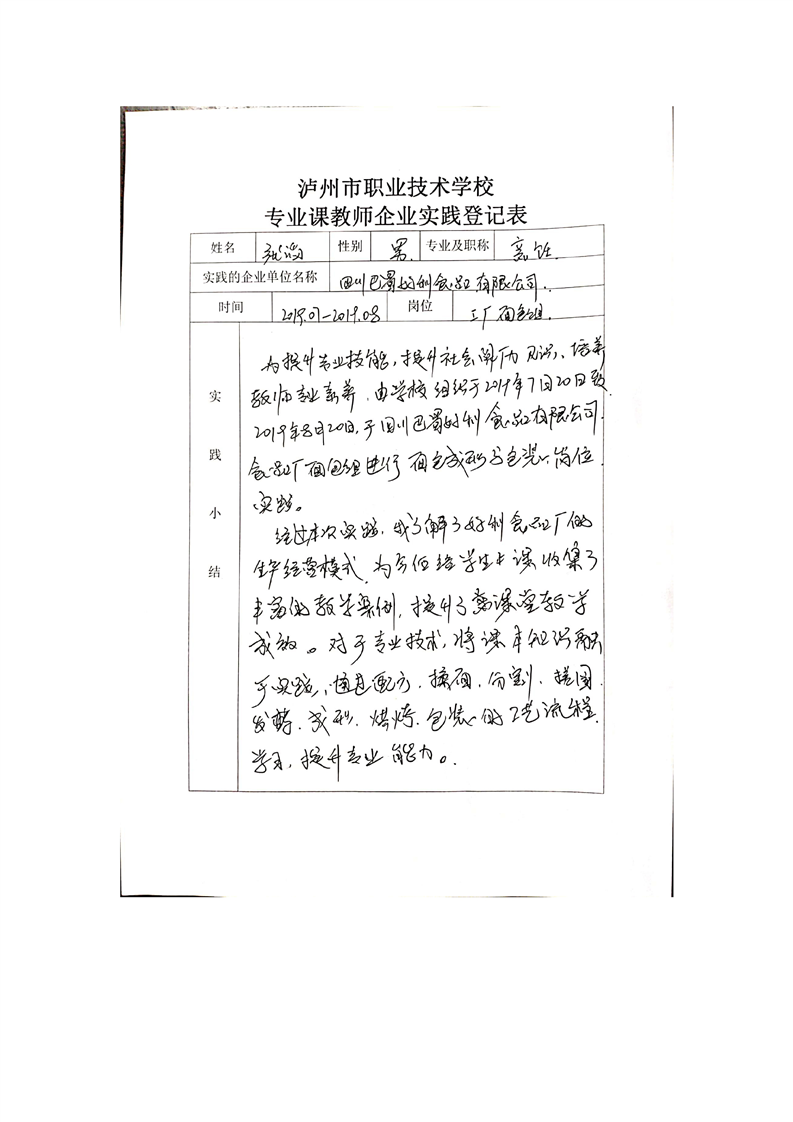 泸州市职业技术学校
专业课教师企业实践登记表
姓名 性别 男. 专业及职称 烹饪.
实践的企业单位名称 四川巴蜀好利食品有限公司.
时间 2019.07-2019.08 岗位 工厂面包组.
实践小结
为提升专业技能,提升社会阅历见识、培养
教师专业素养,由学校组织于2019年7月20日致
2019年8月20日,于四川巴蜀好利食品有限公司.
食品厂面包组进行面包成型与包装岗位
实践。
经过本次实践,我了解了好利食品工厂的
生产经营模式,为今后给学生上课收集了
丰富的教学案例,提升了课堂教学
成效。对于专业技术,将课本知识融入
于实践,通过配方、揉面、分割、搓圆、
发酵、成型、烘烤、包装的工艺流程
学习,提升专业能力。